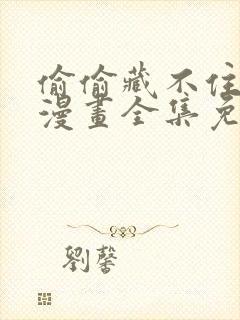 偷偷藏不住
漫畫全集免
劉馨